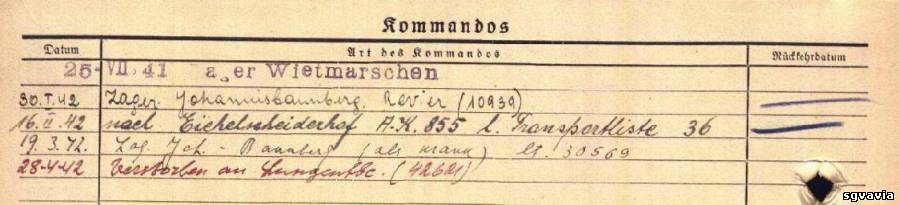 Kommandos
Datum Art des Kommandos Rückkehrdatum
25. VII. 41 ager Wietmarschen
30.I.42 Lager Johannisbannberg. Revier (10939)
16.II.42 nach Eichelscheiderhof A.K. 855 l. Transportliste 36
19.3.42. Lag. Joh.-Bannberg (als krank) lt. 30569
28.4.42 Verstorben an Lungentbc. (42621)
sgvavia